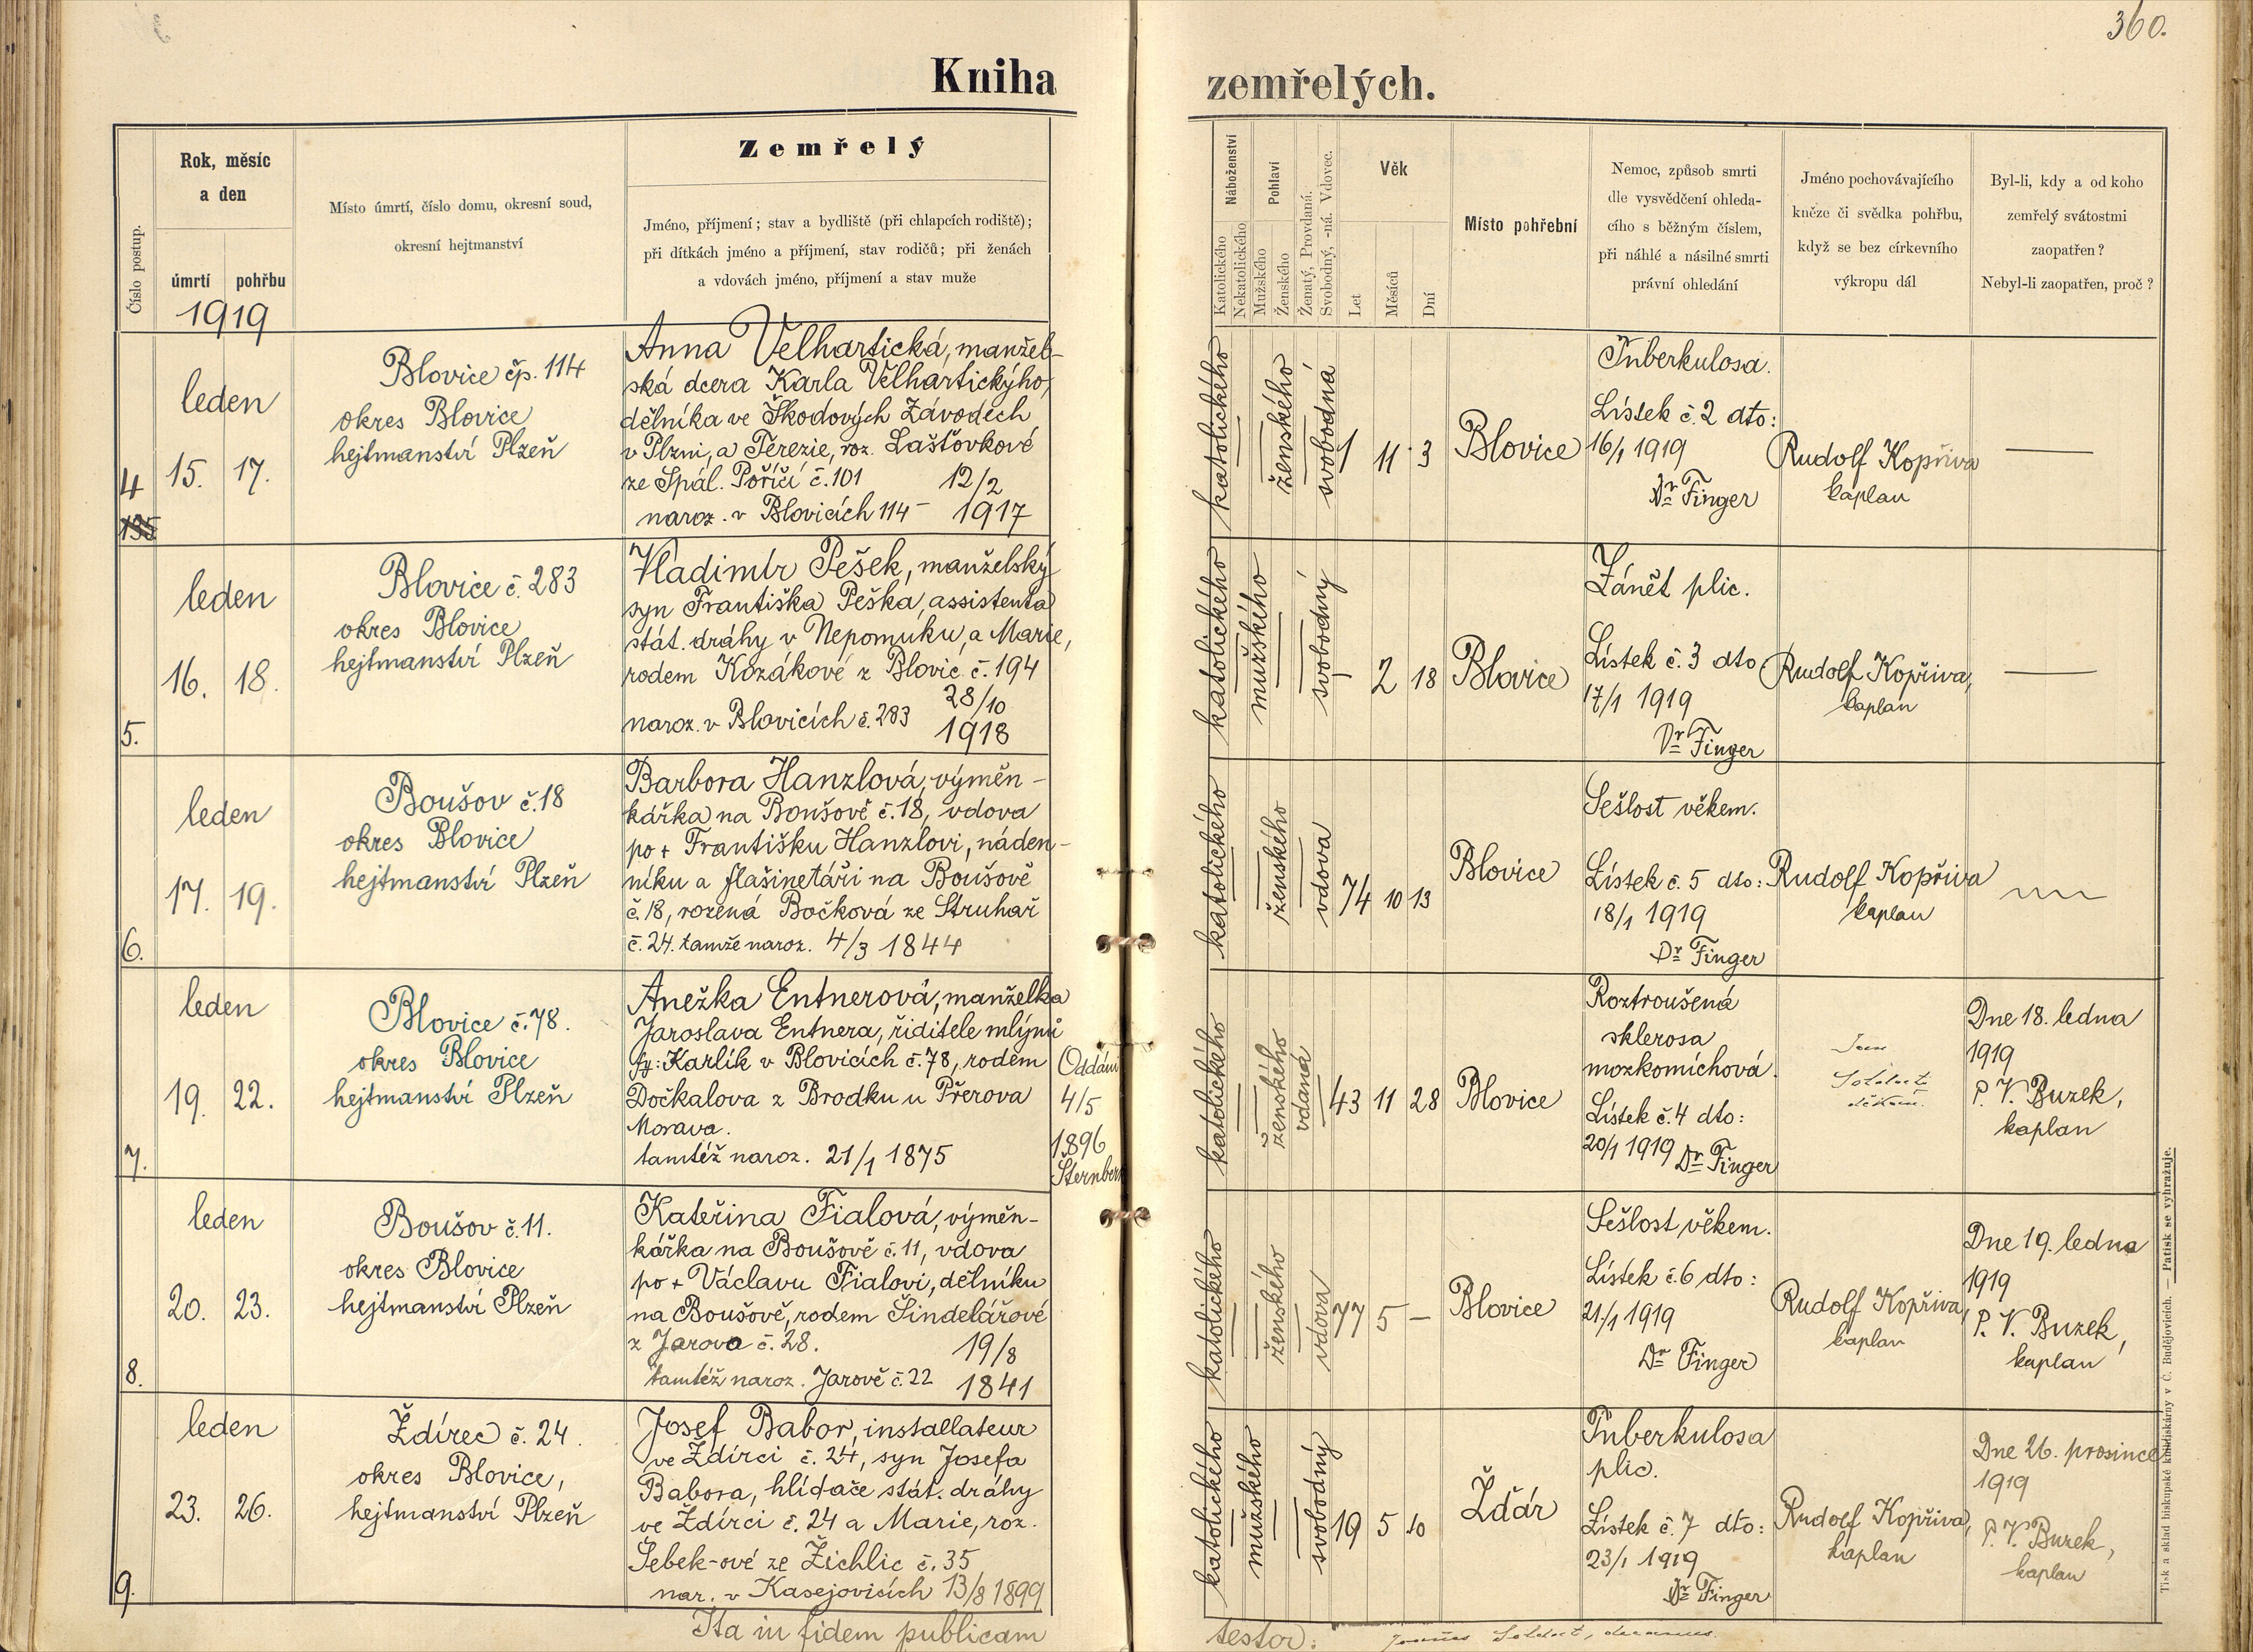 360.
Kniha zemřelých.
Číslo postup.
Rok, měsíc
a den
úmrtí pohřbu
1919
Místo úmrtí, číslo domu, okresní soud,
okresní hejtmanství
Zemřelý
Jméno, příjmení; stav a bydliště (při chlapcích rodiště);
při dítkách jméno a příjmení, stav rodičů; při ženách
a vdovách jméno, příjmení a stav muže
Náboženství
Katolického
Nekatolického
Pohlaví
Mužského
Ženského
Ženatý, Provdaná.
Svobodný, -ná. Vdovec.
Věk
Let
Měsíců
Dní
Místo pohřební
Nemoc, způsob smrti
dle vysvědčení ohleda-
cího s běžným číslem,
při náhlé a násilné smrti
právní ohledání
Jméno pochovávajícího
kněze či svědka pohřbu,
když se bez církevního
výkropu dál
Byl-li, kdy a od koho
zemřelý svátostmi
zaopatřen?
Nebyl-li zaopatřen, proč?
4
135
leden
15. 17.
Blovice čp. 114
okres Blovice
hejtmanství Plzeň
Anna Velhartická, manžel-
ská dcera Karla Velhartickýho,
dělníka ve Škodových Závodech
v Plzni, a Terezie, roz. Lašťovkové
ze Spál. Poříčí č. 101 12/2
naroz. v Blovicích 114 – 1917
katolického
ženského
svobodná
1 11 3
Blovice
Tuberkulosa.
Lístek č. 2 dto:
16/1 1919
Dr Finger
Rudolf Kopřiva
kaplan
—
5.
leden
16. 18.
Blovice č. 283
okres Blovice
hejtmanství Plzeň
Vladimír Pešek, manželský
syn Františka Peška, assistenta
stát. dráhy v Nepomuku, a Marie,
rodem Kozákové z Blovic č. 194
28/10
naroz. v Blovicích č. 283 1918
katolického
mužského
svobodný
2 18
Blovice
Zánět plic.
Lístek č. 3 dto
17/1 1919
Dr Finger
Rudolf Kopřiva,
kaplan
—
6.
leden
17. 19.
Boušov č. 18
okres Blovice
hejtmanství Plzeň
Barbora Hanzlová, výměn-
kářka na Boušově č. 18, vdova
po + Františku Hanzlovi, náden-
níku a flašinetáři na Boušově
č. 18, rozená Bočková ze Struhař
č. 24. tamže naroz. 4/3 1844
katolického
ženského
vdova
74 10 13
Blovice
Sešlost věkem.
Lístek č. 5 dto:
18/1 1919
Dr Finger
Rudolf Kopřiva
kaplan
7.
leden
19. 22.
Blovice č. 78.
okres Blovice
hejtmanství Plzeň
Anežka Entnerová, manželka
Jaroslava Entnera, řiditele mlýnů
fy: Karlík v Blovicích č. 78, rodem
Dočkalova z Brodku u Přerova
Morava.
tamtéž naroz. 21/1 1875
Oddáni
4/5
1896
Šternberk
katolického
ženského
vdaná
43 11 28
Blovice
Roztroušená
sklerosa
mozkomíchová.
Lístek č. 4 dto:
20/1 1919 Dr Finger
děkan.
Dne 18. ledna
1919
P. V. Buzek,
kaplan
8.
leden
20. 23.
Boušov č. 11.
okres Blovice
hejtmanství Plzeň
Kateřina Fialová, výměn-
kářka na Boušově č. 11, vdova
po + Václavu Fialovi, dělníku
na Boušově, rodem Šindelářové
z Jarova č. 28. 19/8
tamtéž naroz. Jarově č. 22 1841
katolického
ženského
vdova
77 5 –
Blovice
Sešlost věkem.
Lístek č. 6 dto:
21/1 1919
Dr Finger
Rudolf Kopřiva,
kaplan
Dne 19. ledna
1919
P. V. Buzek,
kaplan
9.
leden
23. 26.
Ždírec č. 24.
okres Blovice,
hejtmanství Plzeň
Josef Babor, installateur
ve Ždírci č. 24, syn Josefa
Babora, hlídače stát. dráhy
ve Ždírci č. 24 a Marie, roz.
Šebek-ové ze Žichlic č. 35
nar. v Kasejovicích 13/8 1899
katolického
mužského
svobodný
19 5 10
Žďár
Tuberkulosa
plic.
Lístek č. 7 dto:
23/1 1919
Dr Finger
Rudolf Kopřiva,
kaplan
Dne 26. prosince
1919
P. V. Buzek,
kaplan
Ita in fidem publicam testor:
Tisk a sklad biskupské knihtiskárny v Č. Budějovicích. — Patisk se vyhražuje.